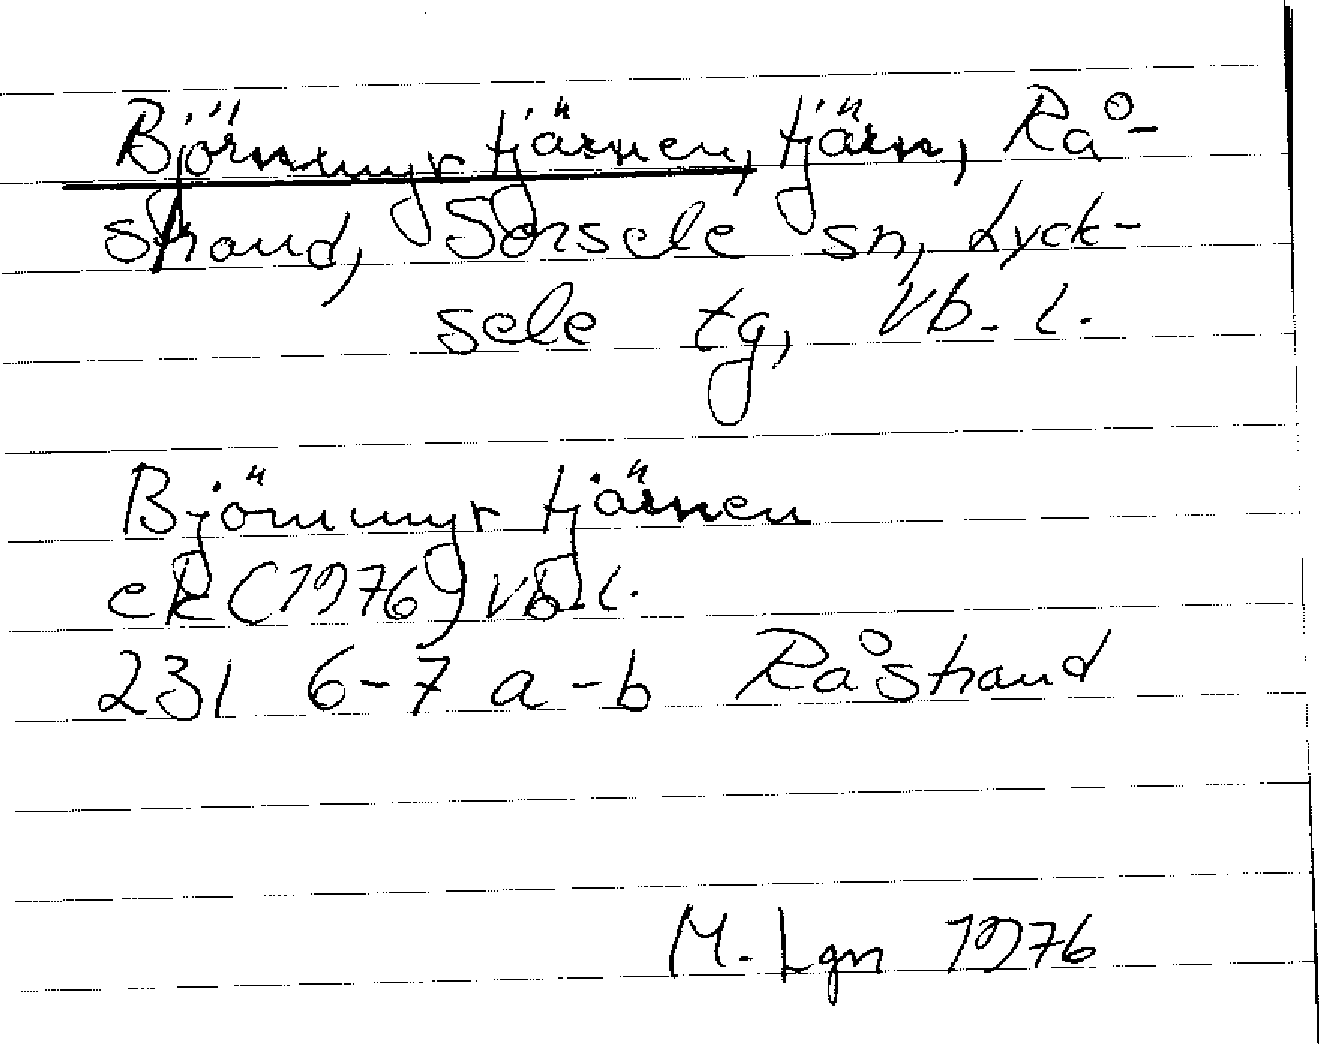 Björnmyrtjärnen, tjärn, Rå-
strand, Sorsele sn, Lyck-
sele tg, Vb. l.
Björnmyrtjärnen
ek (1976) Vb. l.
23I 6-7 a-b Råstrand
M. Lgn 1976